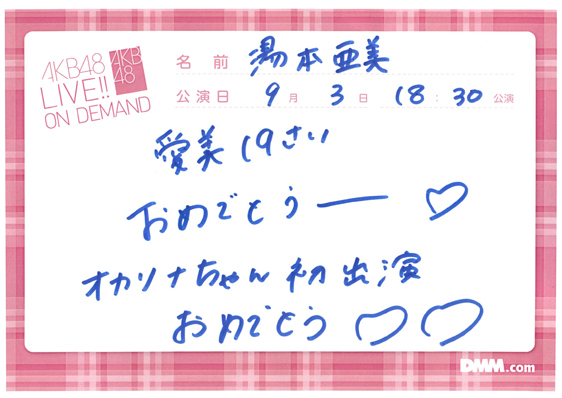 AKB48
LIVE!!
ON DEMAND
AKB
48
名前 湯本亜美
公演日 9月 3日 18:30公演
愛美19さい
おめでとうー♡
オカリナちゃん初出演
おめでとう♡♡
DMM.com